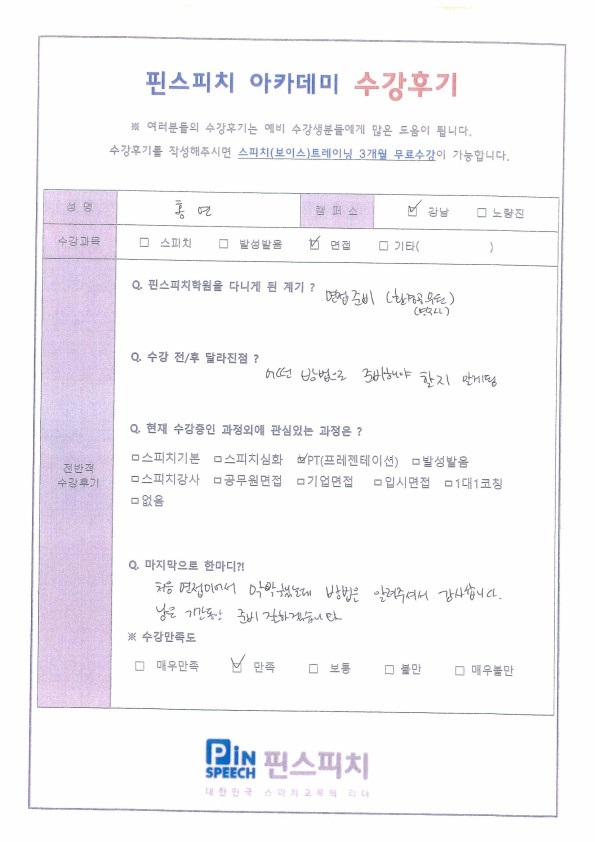 핀스피치 아카데미 수강후기
※ 여러분들의 수강후기는 예비 수강생분들에게 많은 도움이 됩니다.
수강후기를 작성해주시면 스피치(보이스)트레이닝 3개월 무료수강이 가능합니다.
성 명 홍 연 캠 퍼 스 ☑ 강남 □ 노량진
수강과목 □ 스피치 □ 발성발음 ☑ 면접 □ 기타( )
Q. 핀스피치학원을 다니게 된 계기 ?
면접준비 (환경공무관)
Q. 수강 전/후 달라진점 ?
어떤 방법으로 준비해야 할지 알게됨
Q. 현재 수강중인 과정외에 관심있는 과정은 ?
전반적
수강후기
□스피치기본 □스피치심화 ☑PT(프레젠테이션) □발성발음
□스피치강사 □공무원면접 □기업면접 □입시면접 □1대1코칭
□없음
Q. 마지막으로 한마디?!
처음 면접이어서 막막했는데 방법은 알려주셔서 감사합니다.
남은 기간동안 준비 잘하겠습니다
※ 수강만족도
□ 매우만족 ☑ 만족 □ 보통 □ 불만 □ 매우불만
PiN
SPEECH 핀스피치
대한민국 스피치교육의 리더